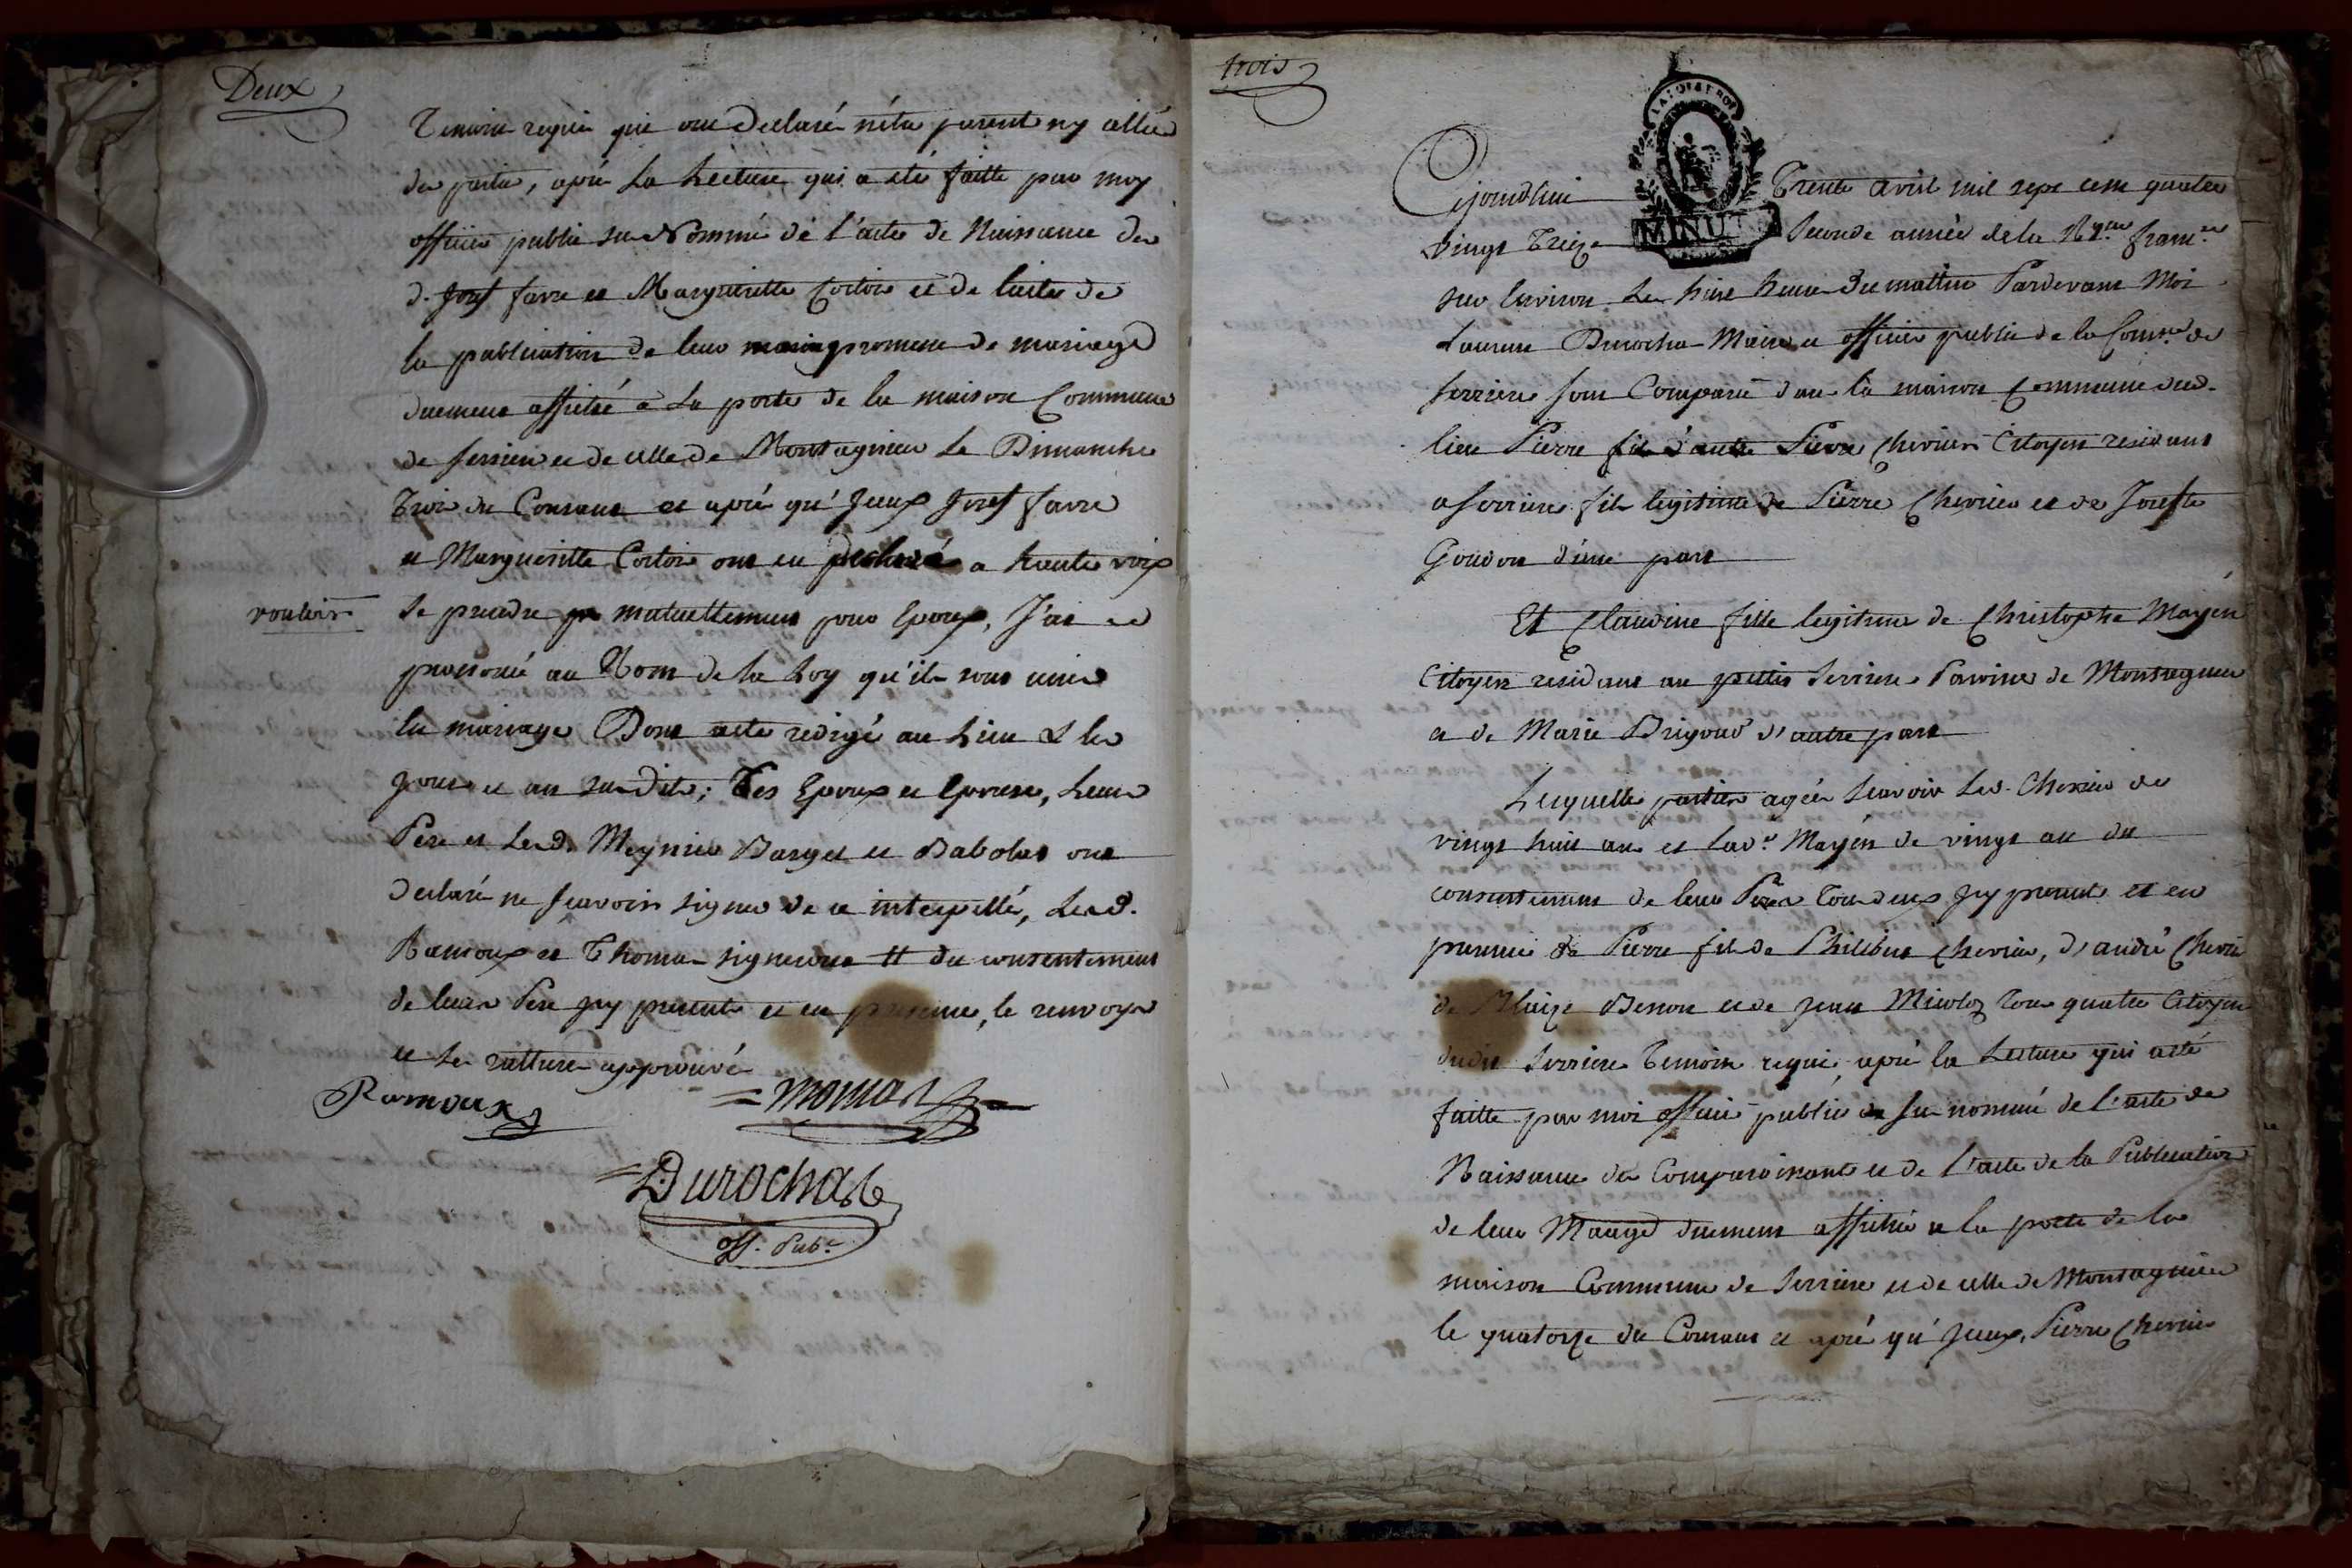 Deux
Temoins requis qui ont declaré n'être parent ny alliés
des parties, après La Lecture qui a été faitte par moy
officier public susNommé de l'acte de Naissance des
d. Josef favre et Margueritte Cortois et de l'acte de
la publication de leur promesse de mariage
duement affiché à La porte de la maison Commune
de serriere et de celle de Montagnieu Le Dimanche
Trois du Courant et après qu'Jceux Josef favre
et Margueritte Cortois ont eu declaré a haute voix
vouloir
se prendre mutuellement pour Epoux, J'ai
prononcé au Nom de la Loy qu'ils sont unis
en mariage Dont acte redigé au Lieu & les
jour et an susdits; Les Epoux et Epouse, Leurs
Pere et Lesd. Meynier Barget et Babolat ont
declaré ne scavoir signer de ce interpellé, Lesd.
Ramoux et Thomas signeront # du consentement
de leurs Pere jcy present et en presence, le renvoy
et les ratture approuvé
Ramoux
Thomas
Durochat
off. Pub.
trois
LA LOI ET LE ROI
MINUT
Cejourdhui Trente avril mil sept cent quatre
vingt Treize Seconde année de la Rque franc.se
sur Environ Les huit heures du mattin Pardevant Moi
Laurent Durochat Maire et officier public de la Com.ne de
serriere sont Comparu dans la maison Commune dud.
lieu Pierre fils d'autre Pierre Chevrier Citoyen residant
a serriere fils legitime de Pierre Chevrier et de Josefte
Goudon d'une part
Et Claudine fille legitime de Christophe Mayén
Citoyen residant au pettit Serriere Paroisse de Montagnieu
et de Marie Brigoud d'autre part
Lesquelles parties agées scavoir Led. Chevrier de
vingt huit ans et lad.e Mayén de vingt ans du
consentement de leurs Pères Tous deux jcy present et en
presence de Pierre fils de Philibert Chevrier, d'andré Chevrier
de Blaize Benon et de jean Micoloz Tous quatre Citoyen
dudit Serriere Temoins requis, après la Lecture qui a eté
faitte par moi officier public susnommé de l'acte de
Naissance des Comparoissants et de l'acte de la Publication
de leur Mariage duement affiché a la porte de la
maison Commune de Serriere et de celle de Montagnieu
le quatorze du Courant et après qu'Jceux, Pierre Chevrier